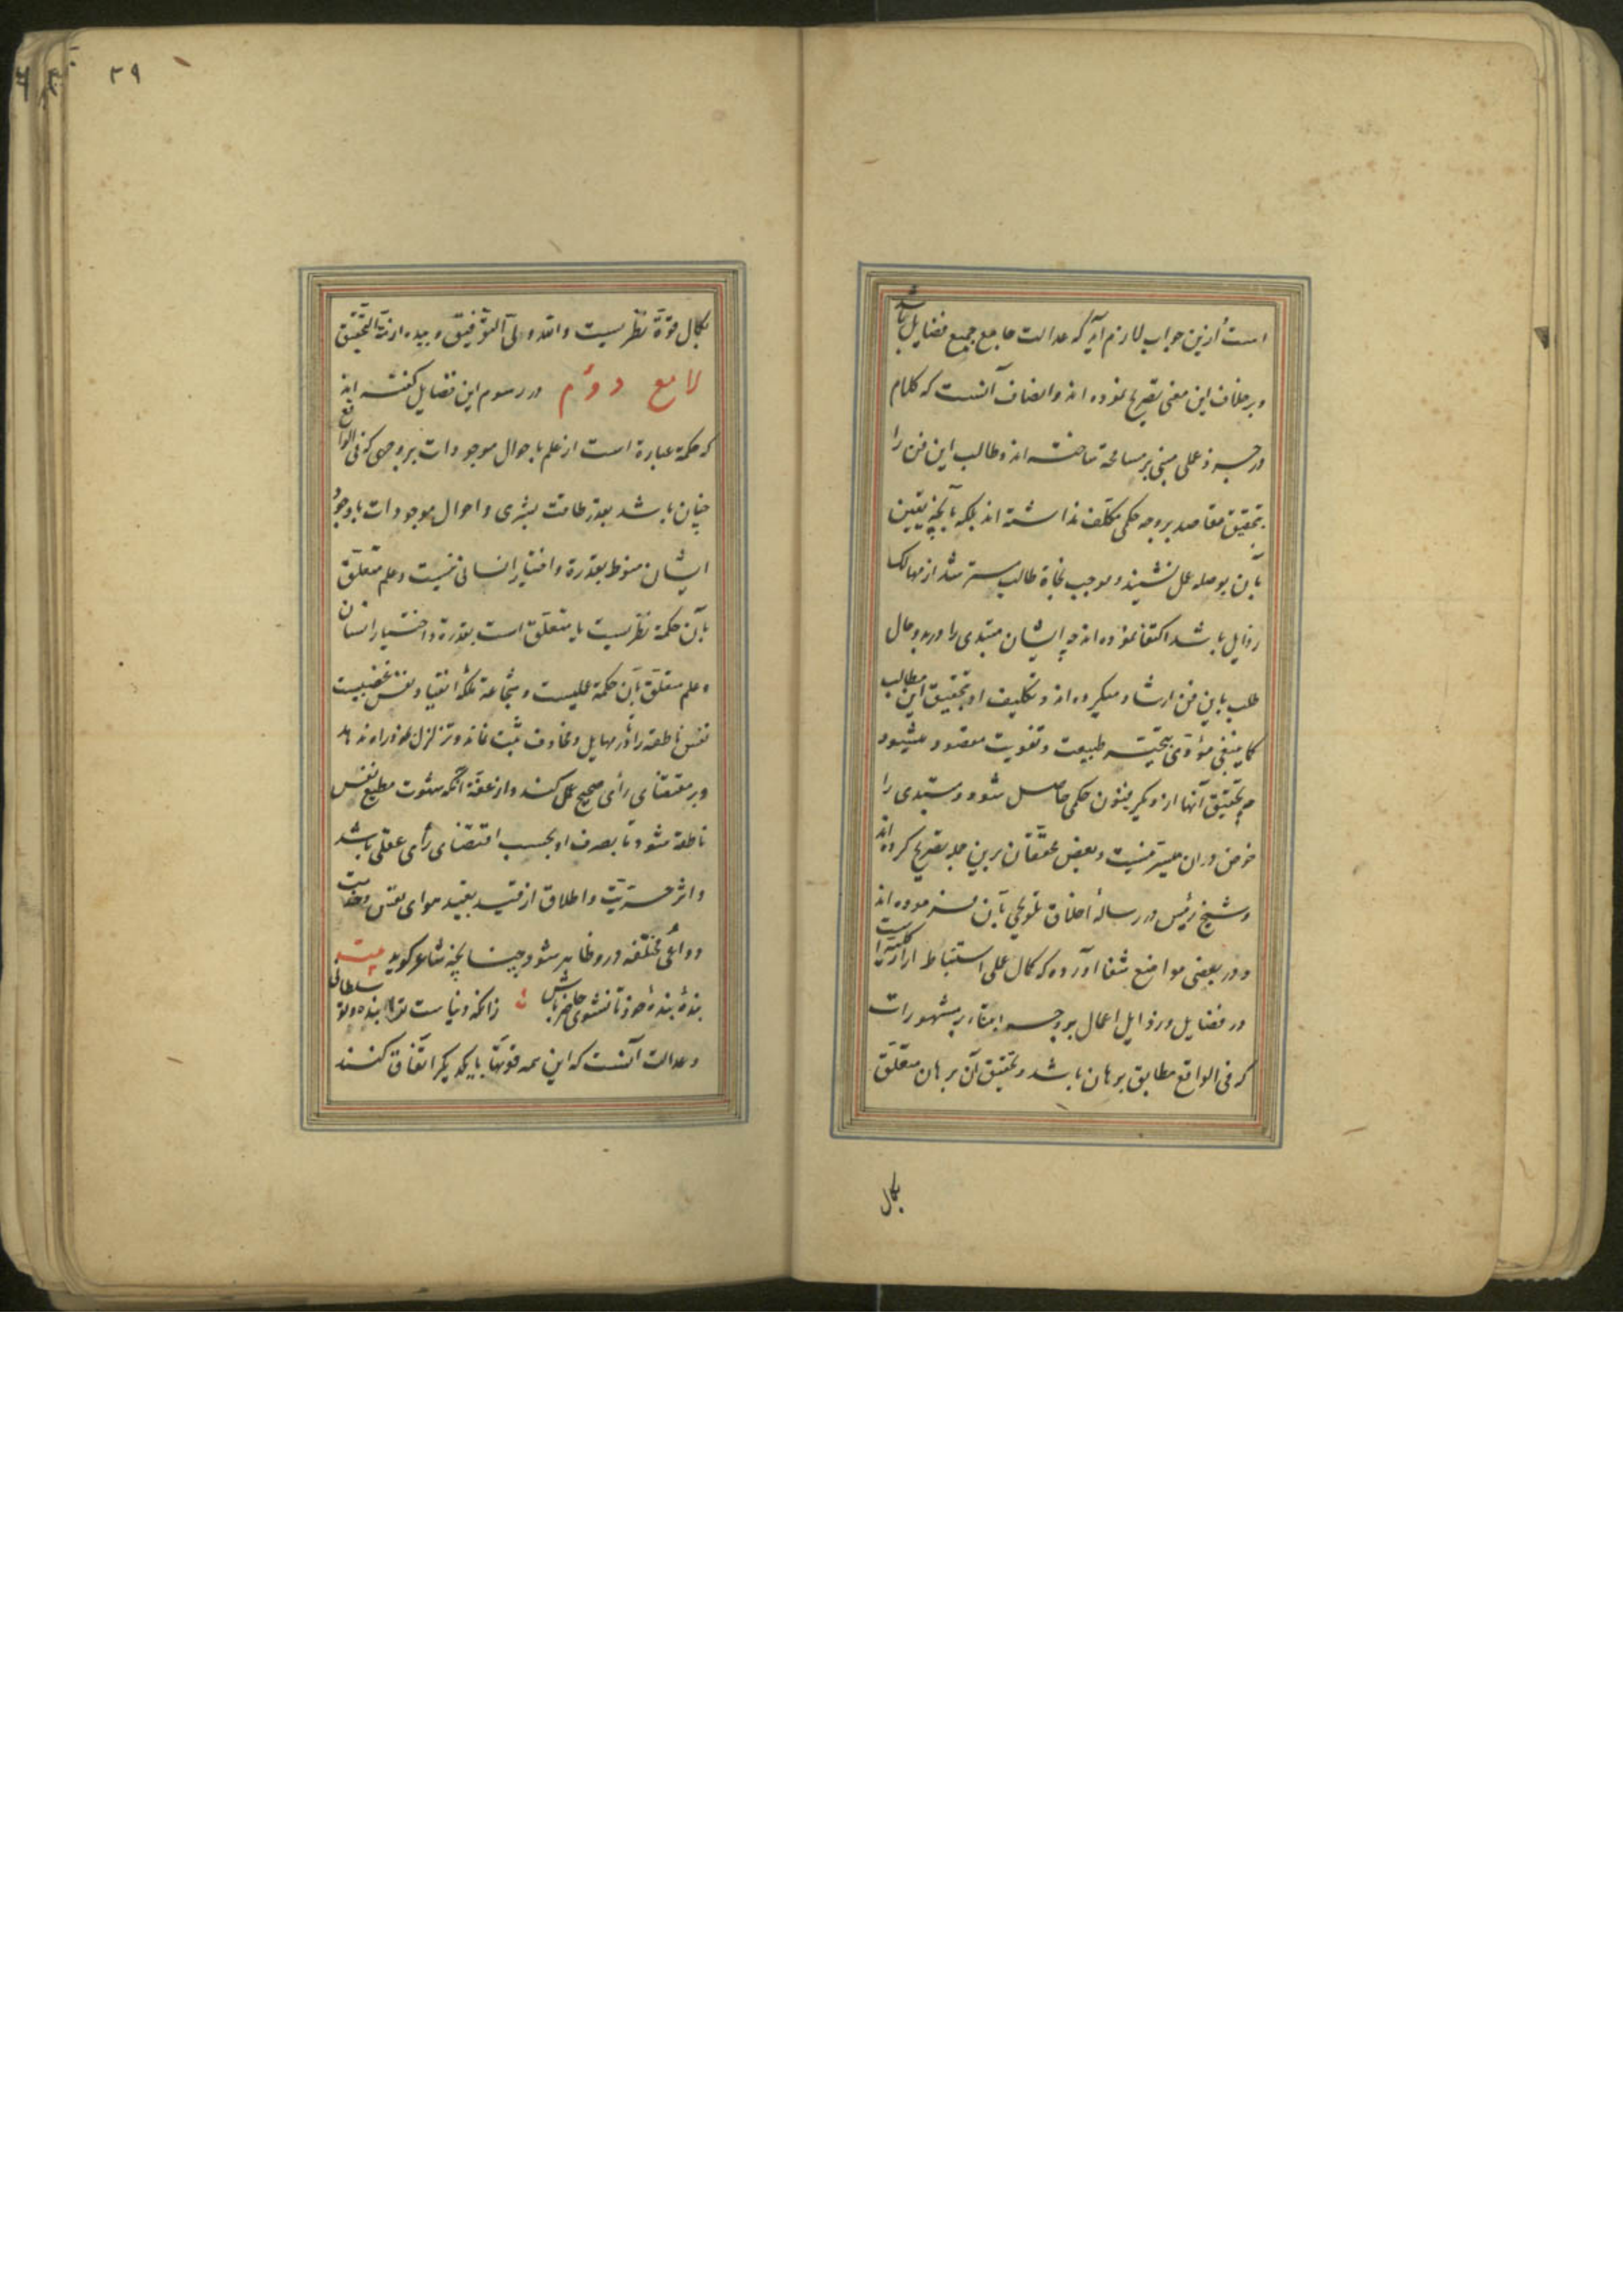 است ازین جواب لازم آید که عدالت جامع جمیع فضایل باشد
و برخلاف این معنی تصریح نموده اند و انصاف آنست که کلام
در جزو عملی مبنی بر مسامحة ساخته اند و طالب این فن را
بتحقیق مقاصد بر وجه حکمی مکلف نداشته اند بلکه بآنچه یقین
بآن بوصله عمل نشیند و موجب نجاة طالب مسترشد از مهالک
رذایل باشد اکتفا نموده اند چه ایشان مبتدی را در بدو حال
طلب باین فن ارشاد میکرده اند و تکلیف او بتحقیق این مطالب
کما ینبغی مؤدی طبیعت و تفویت مقصود میشود
چه تحقیق آنها از دیگر فنون حکمی حاصل شود و مبتدی را
خوض در ان میسر نیست و بعض محققان برین جمله تصریح کرده اند
و شیخ رئیس در رسالۀ اخلاق تلویحی بآن فرموده اند
و در بعضی مواضع شفا آورده که کمال عملی استنباط آرا کلیه است
در فضایل و رذایل اعمال بر وجه ابتنا بر مشهورات
که فی الواقع مطابق برهان باشد و تحقیق آن برهان متعلق
بکمال
۳۹
بکمال قوة نظریست والله ولی التوفیق و بیده ازمة التحقیق
لامع دوم در رسوم این فضایل گفته اند
که حکمة عبارة است از علم باحوال موجودات بر وجهی که فی الواقع
چنان باشد بقدر طاقت بشری و احوال موجودات یا وجود
ایشان منوط بقدرة و اختیار انسانی نیست و علم متعلق
بآن حکمة نظریست یا متعلق است بقدرة و اختیار انسان
و علم متعلق بآن حکمة عملیست و شجاعة ملکۀ انقیاد نفس غضبیست
نفس ناطقه را تا در مهایل و مخاوف ثبت نماند و تزلزل بخود راه ندهد
و بر مقتضای رأی صحیح عمل کند و از عفة آنکه شهوت مطیع نفس
ناطقه شود تا تصرف او بحسب اقتضای رأی عقلی باشد
و اثر حریت و اطلاق از قید تقید هوای نفس و خدمت
دواعی مختلفه درو ظاهر شود چنانچه شاعر گوید بیت
بندۀ بندۀ خود تا نشوی حاضر باش زانکه دنیاست ترا بنده و تو سلطانی
و عدالت آنست که این همه قوتها با یکدیگر اتفاق کنند